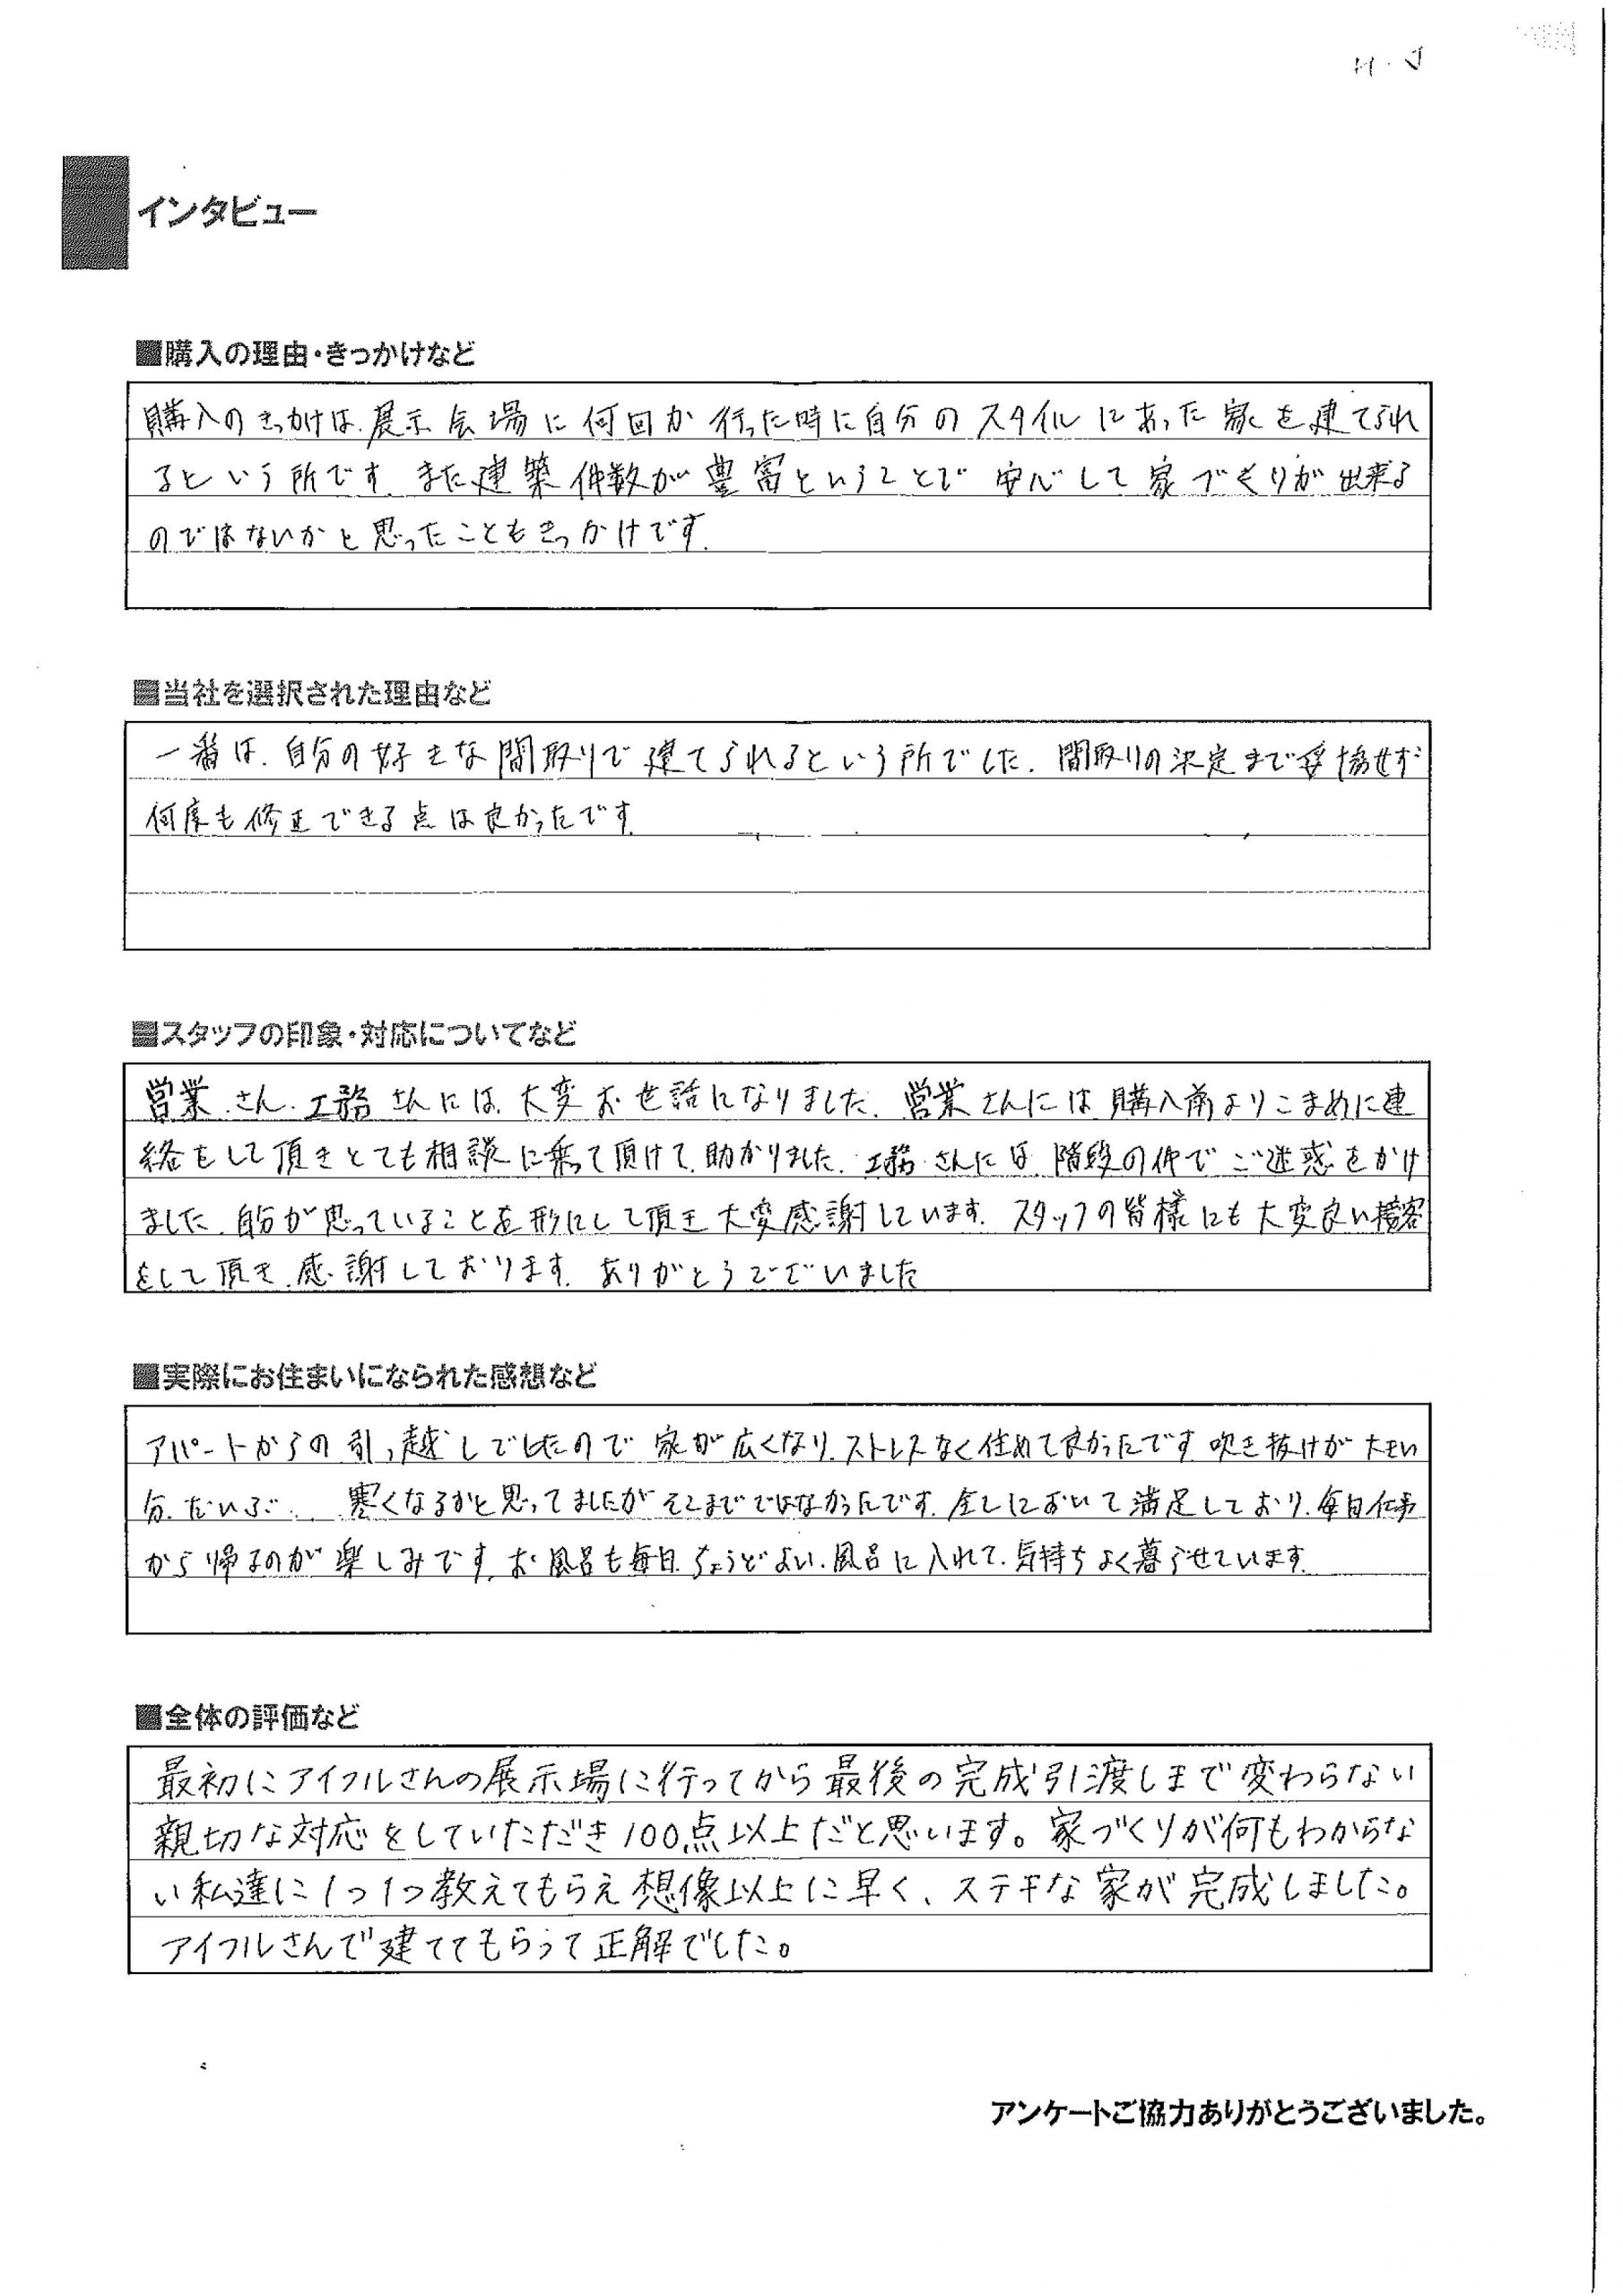 H・J
インタビュー
■購入の理由・きっかけなど
購入のきっかけは、展示会場に何回か行った時に自分のスタイルにあった家を建てられ
るという所です。また建築件数が豊富ということで安心して家づくりが出来る
のではないかと思ったこともきっかけです。
■当社を選択された理由など
一番は、自分の好きな間取りで建てられるという所でした。間取りの決定まで妥協せず
何度も修正できる点は良かったです。
■スタッフの印象・対応についてなど
営業さん、工務さんには、大変お世話になりました。営業さんには購入前よりこまめに連
絡をして頂きとても相談に乗って頂けて、助かりました。工務さんには、階段の件でご迷惑をかけ
ました。自分が思っていることを形にして頂き大変感謝しています。スタッフの皆様にも大変良い接客
をして頂き、感謝しております。ありがとうございました
■実際にお住まいになられた感想など
アパートからの引っ越しでしたので家が広くなり、ストレスなく住めて良かったです。吹き抜けが大きい
分、だいぶ、寒くなるかと思ってましたがそこまでではなかったです。全てにおいて満足しており、毎日仕事
から帰るのが楽しみです。お風呂も毎日、ちょうどよい、風呂に入れて、気持ちよく暮らせています。
■全体の評価など
最初にアイフルさんの展示場に行ってから最後の完成引渡しまで変わらない
親切な対応をしていただき100点以上だと思います。家づくりが何もわからな
い私達に1つ1つ教えてもらえ想像以上に早く、ステキな家が完成しました。
アイフルさんで建ててもらって正解でした。
アンケートご協力ありがとうございました。